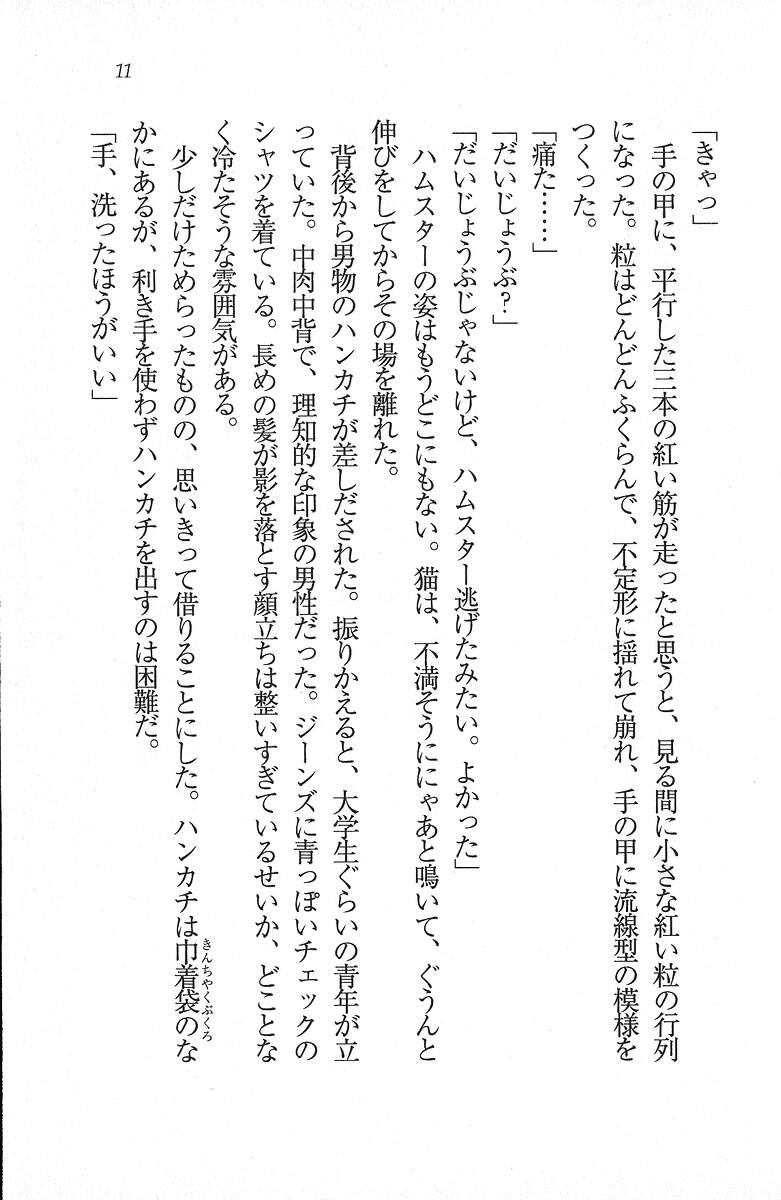 11
「きゃっ」
　手の甲に、平行した三本の紅い筋が走ったと思うと、見る間に小さな紅い粒の行列
になった。粒はどんどんふくらんで、不定形に揺れて崩れ、手の甲に流線型の模様を
つくった。
「痛た……」
「だいじょうぶ？」
「だいじょうぶじゃないけど、ハムスター逃げたみたい。よかった」
　ハムスターの姿はもうどこにもない。猫は、不満そうににゃあと鳴いて、ぐうんと
伸びをしてからその場を離れた。
　背後から男物のハンカチが差しだされた。振りかえると、大学生ぐらいの青年が立
っていた。中肉中背で、理知的な印象の男性だった。ジーンズに青っぽいチェックの
シャツを着ている。長めの髪が影を落とす顔立ちは整いすぎているせいか、どことな
く冷たそうな雰囲気がある。
　少しだけためらったものの、思いきって借りることにした。ハンカチは巾着袋のな
きんちゃくぶくろ
かにあるが、利き手を使わずハンカチを出すのは困難だ。
「手、洗ったほうがいい」